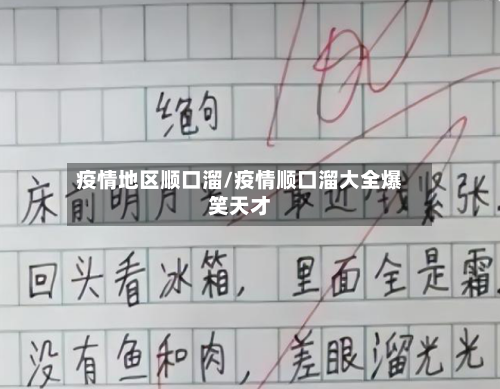 100
绝句
疫情地区顺口溜/疫情顺口溜大全爆
笑天才
床前明月 最近 紧张.
回头看冰箱, 里面全是霜.
没有鱼和肉, 差眼溜光光